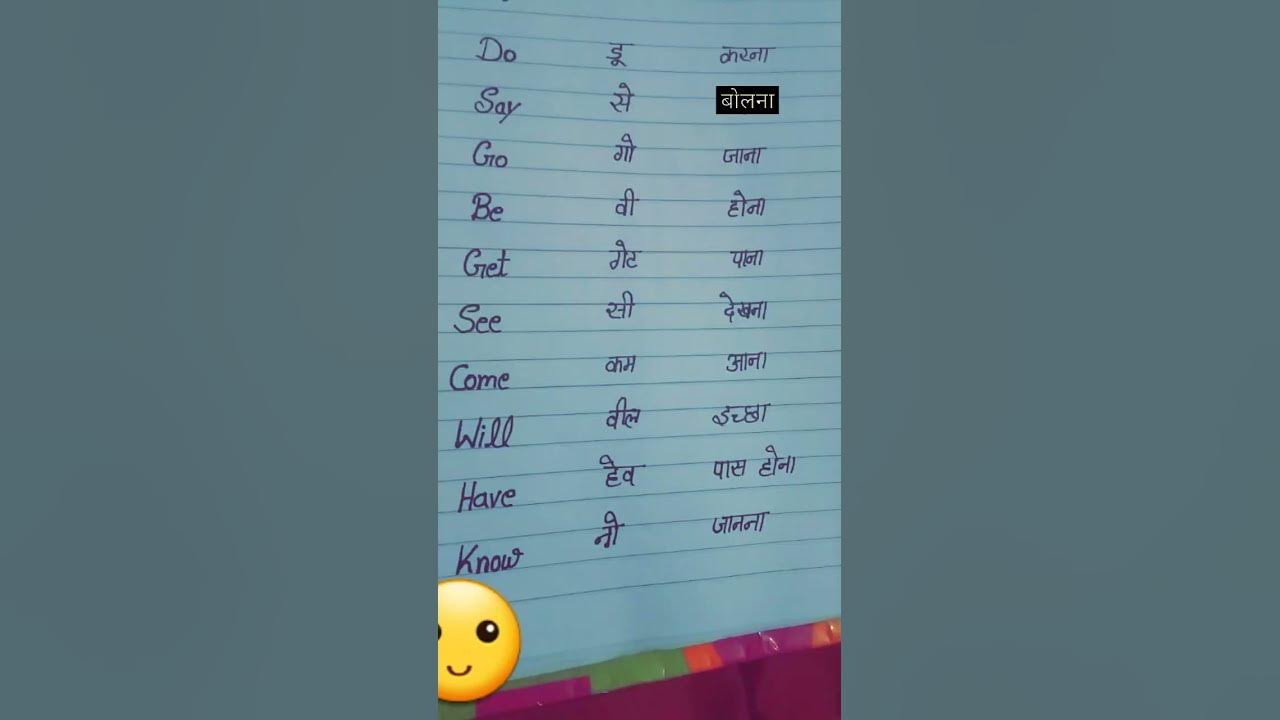 Do डू करना
Say से बोलना
Go गो जाना
Be वी होना
Get गेट पाना
See सी देखना
Come कम आना
Will वील इच्छा
Have हेव पास होना
Know नो जानना